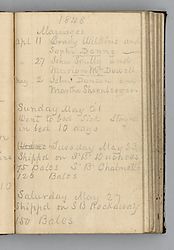 1846
Marriages
Apl 11 Brady Wilkins and
Sophi Denny
27 John Scully and
Marion McDowell
May 2 John Duncan and
Martha
Sunday May 1
Went to bed Sick Stayed
in bed 10 days
Tuesday May 23
Shippd on S.B.
75 Bales S B Chalmette
126 Bales
Saturday May 27
Shippd on S B Rockaway
150 Bales